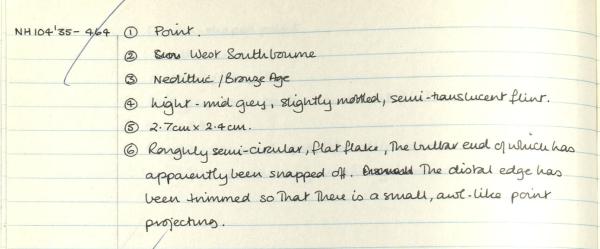 NH104'35-464 ① Point.
② West Southbourne
③ Neolithic / Bronze Age
④ Light-mid grey, slightly mottled, semi-translucent flint.
⑤ 2.7cm x 2.4cm.
⑥ Roughly semi-circular, flat flake, The bulbar end of which has
apparently been snapped off. The distal edge has
been trimmed so That There is a small, awl-like point
projecting.